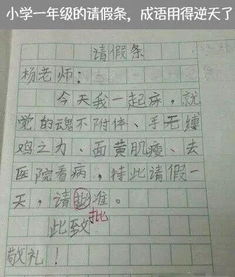 小学一年级的请假条，成语用得逆天了
请假条
杨老师：
今天我一起床，就
觉的魂不付体、手无缚
鸡之力、面黄肌瘦、去
医院看病，特此请假一
天，请准。
批
此致
敬礼！